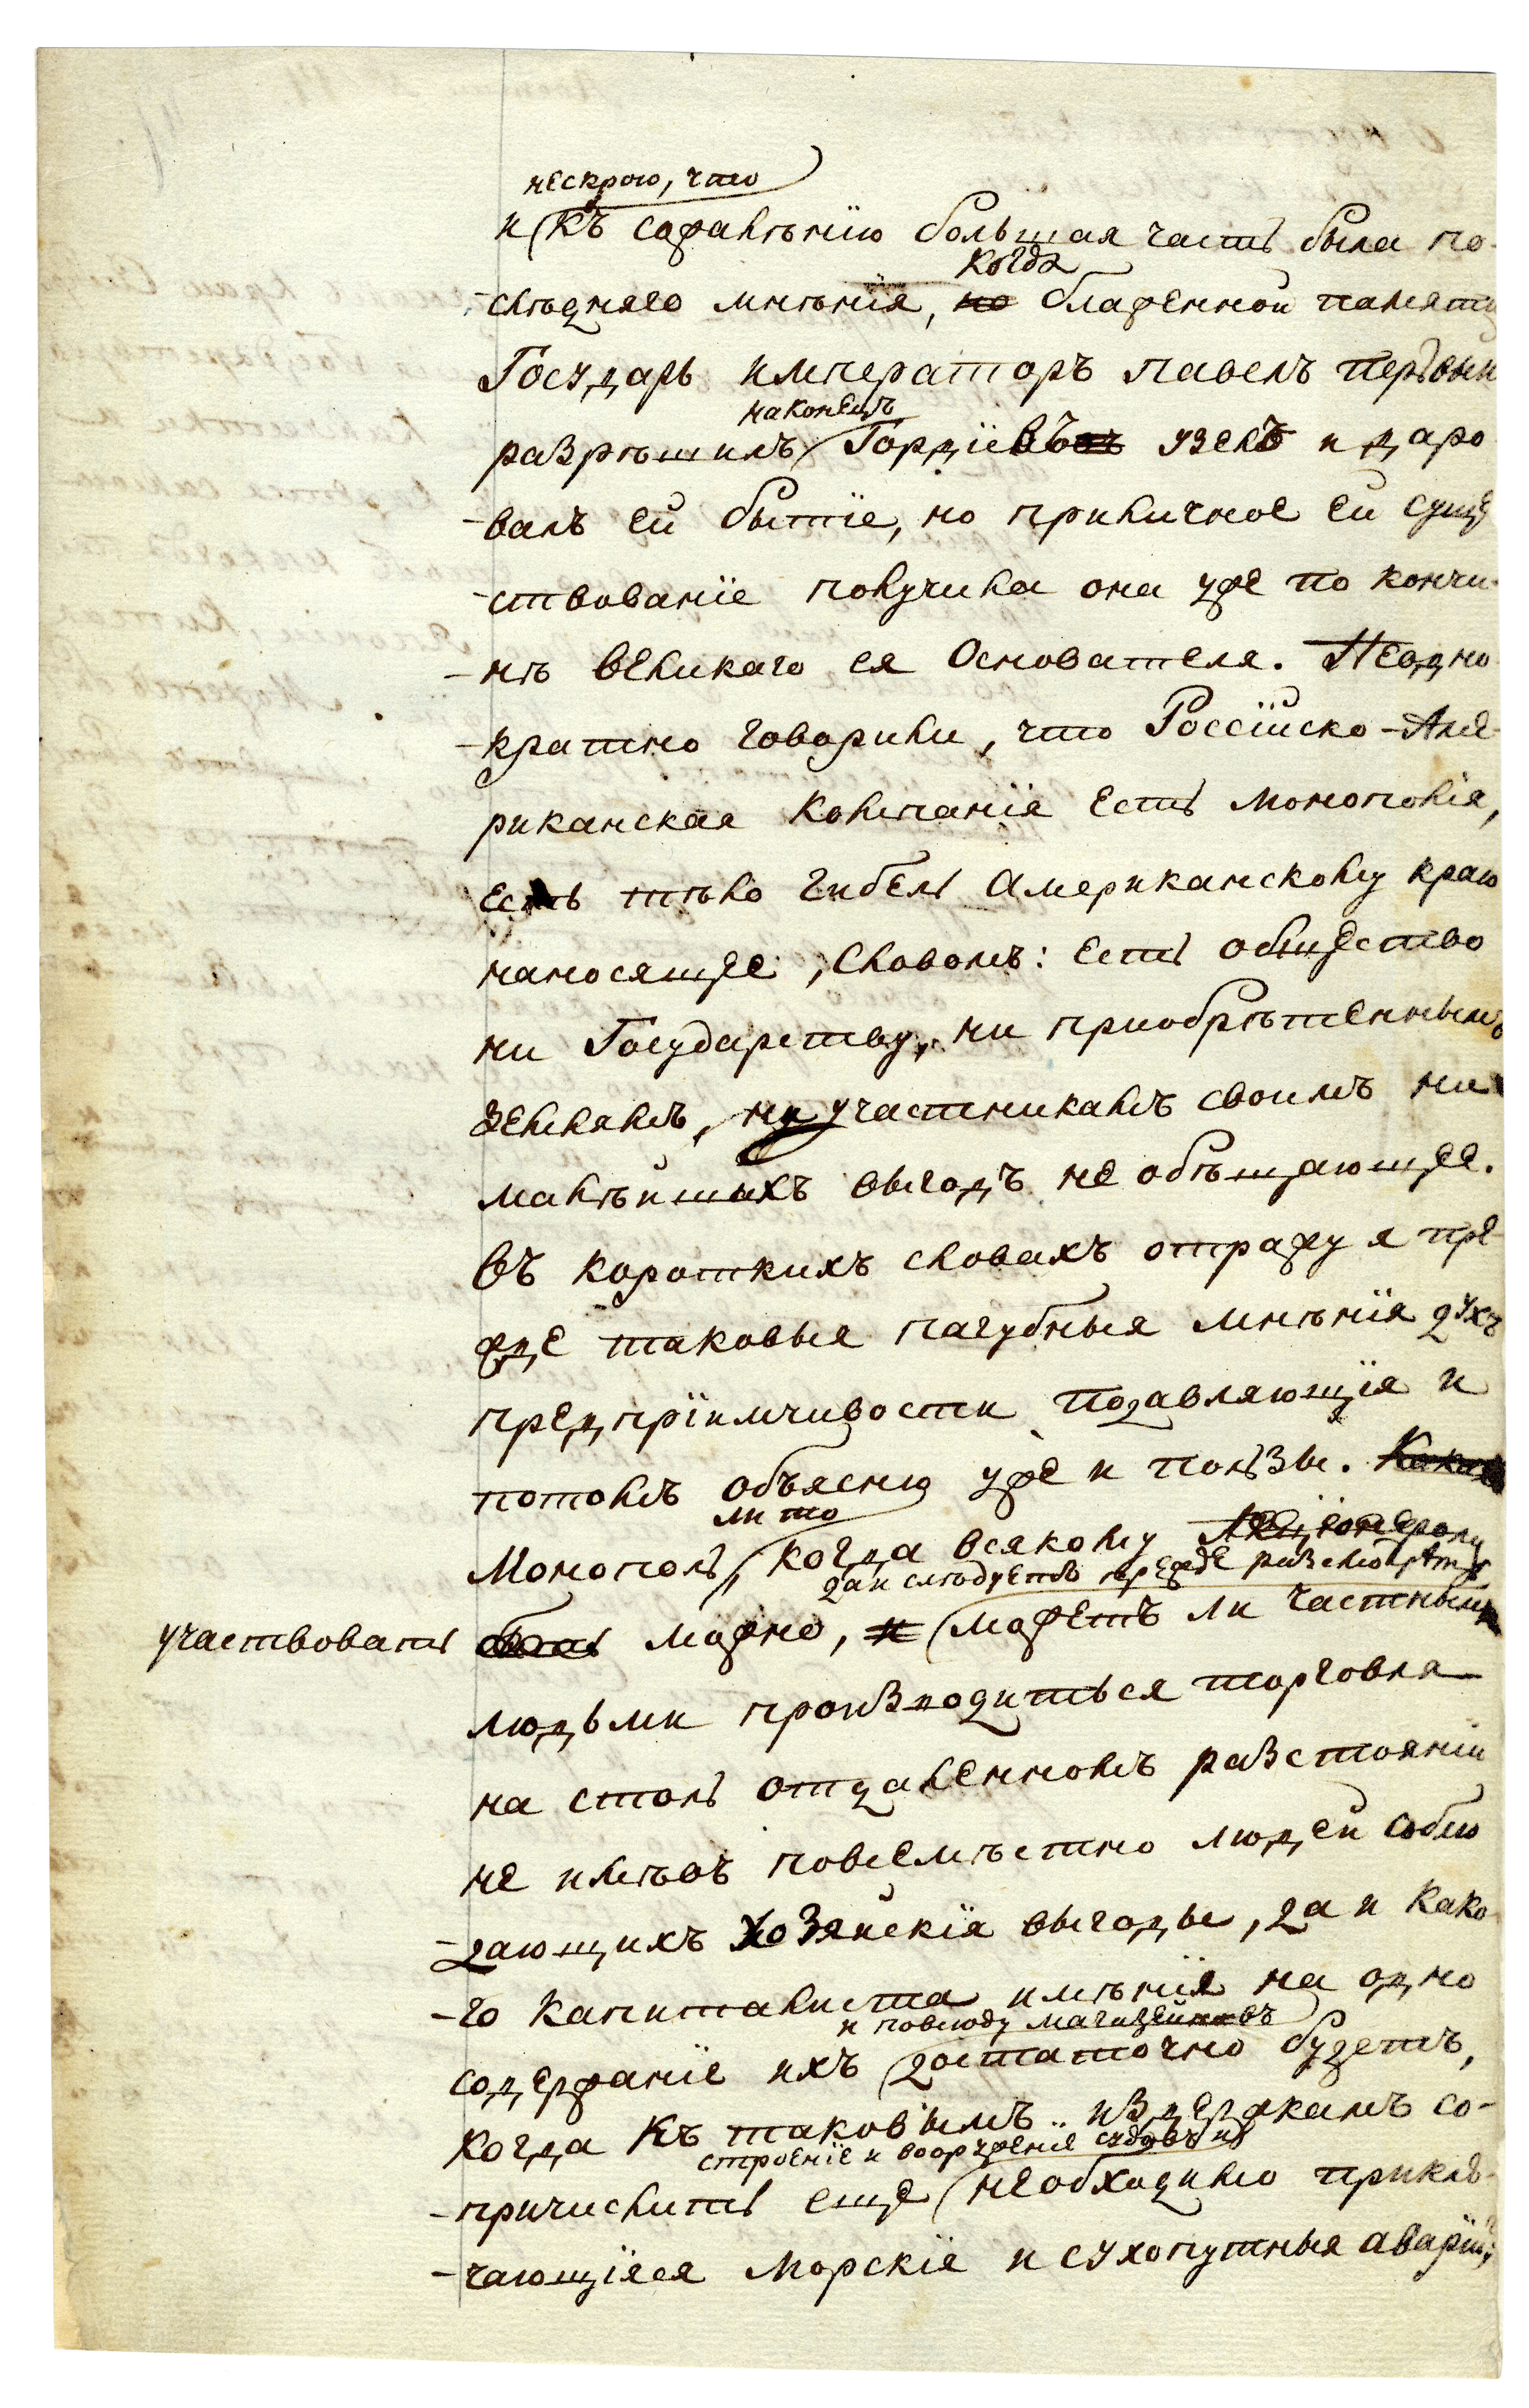 нескрою, что
и къ сожаленїю большая часть была по-
когда
-слѣдняго мнѣнія, но блаженной памяти
Государь императоръ павелъ первый
наконецъ
разрѣшилъ Гордїевъ узелъ и даро
-валъ ей бытїе, но приличное ей суще
-ствованїе получила она уже по кончи-
-нѣ великаго ея Основателя. Неодно
-кратно говорили, что Россїйско-Аме-
риканская Компанїя есть монополїя,
есть тѣло гибель Американскому краю
наносящее, словомъ: есть общество
ни Государству, ни приобрѣтеннымъ
землямъ, ни участникамъ своимъ ни
малѣйшихъ выгодъ не обѣщающее.
Въ короткихъ словахъ отражу я пре-
жде таковыя пагубныя мнѣнїя духъ
предпрїимчивости подавляющїя и
потомъ объясню уже и пользы.
ли то
Монополь, когда всякому Акцїонеромъ
да и слѣдуетъ прежде разсмотрѣть
участвовать быть можно, и можетъ ли частными
людьми производиться торговля
на столь отдаленномъ разстоянїи
не имѣвъ повсемѣстно людей соблю
-дающихъ хозяйскїя выгоды, да и како
-го капиталиста имѣнїя на одно
и повсюду магазейновъ
содержанїе ихъ достаточно будетъ,
когда къ таковымъ издержкамъ со-
строенїе и вооруженїе судовъ и
-причислить еще необходимо приклю-
-чающїяся морскїе и сухопутныя аварїи,